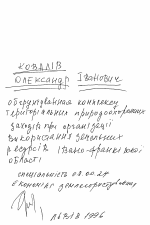 КОВАЛІВ
ОЛЕКСАНДР ІВАНОВИЧ
обґрунтування комплексу
територіальних природоохоронних
заходів при організації
використання земельних
ресурсів Івано-Франківської
області
спеціальність 08.00.27
економіка землекористування
ЛЬВІВ 1996